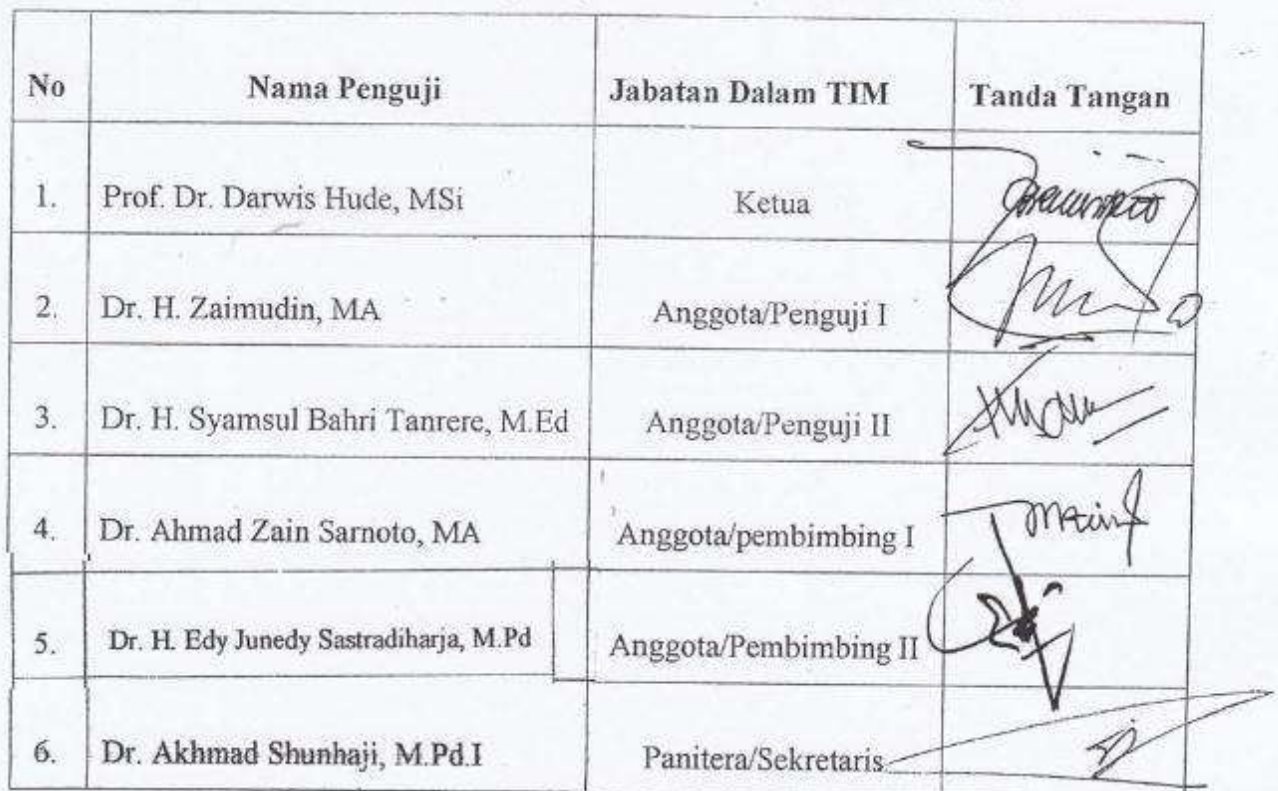 No Nama Penguji Jabatan Dalam TIM Tanda Tangan
1. Prof. Dr. Darwis Hude, MSi Ketua
2. Dr. H. Zaimudin, MA Anggota/Penguji I
3. Dr. H. Syamsul Bahri Tanrere, M.Ed Anggota/Penguji II
4. Dr. Ahmad Zain Sarnoto, MA Anggota/pembimbing I
5. Dr. H. Edy Junedy Sastradiharja, M.Pd Anggota/Pembimbing II
6. Dr. Akhmad Shunhaji, M.Pd.I Panitera/Sekretaris